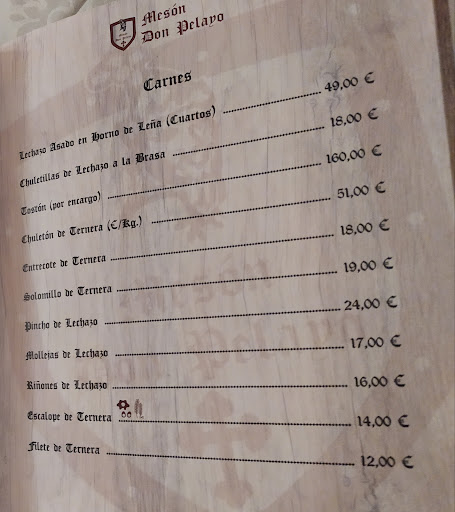 Mesón
Don Pelayo
Carnes
Lechazo Asado en Horno de Leña (Cuartos) 49,00 €
Chuletillas de Lechazo a la Brasa 18,00 €
Tostón (por encargo) 160,00 €
Chuletón de Ternera (€/Kg.) 51,00 €
Entrecote de Ternera 18,00 €
Solomillo de Ternera 19,00 €
Pincho de Lechazo 24,00 €
Mollejas de Lechazo 17,00 €
Riñones de Lechazo 16,00 €
Escalope de Ternera 14,00 €
Filete de Ternera 12,00 €